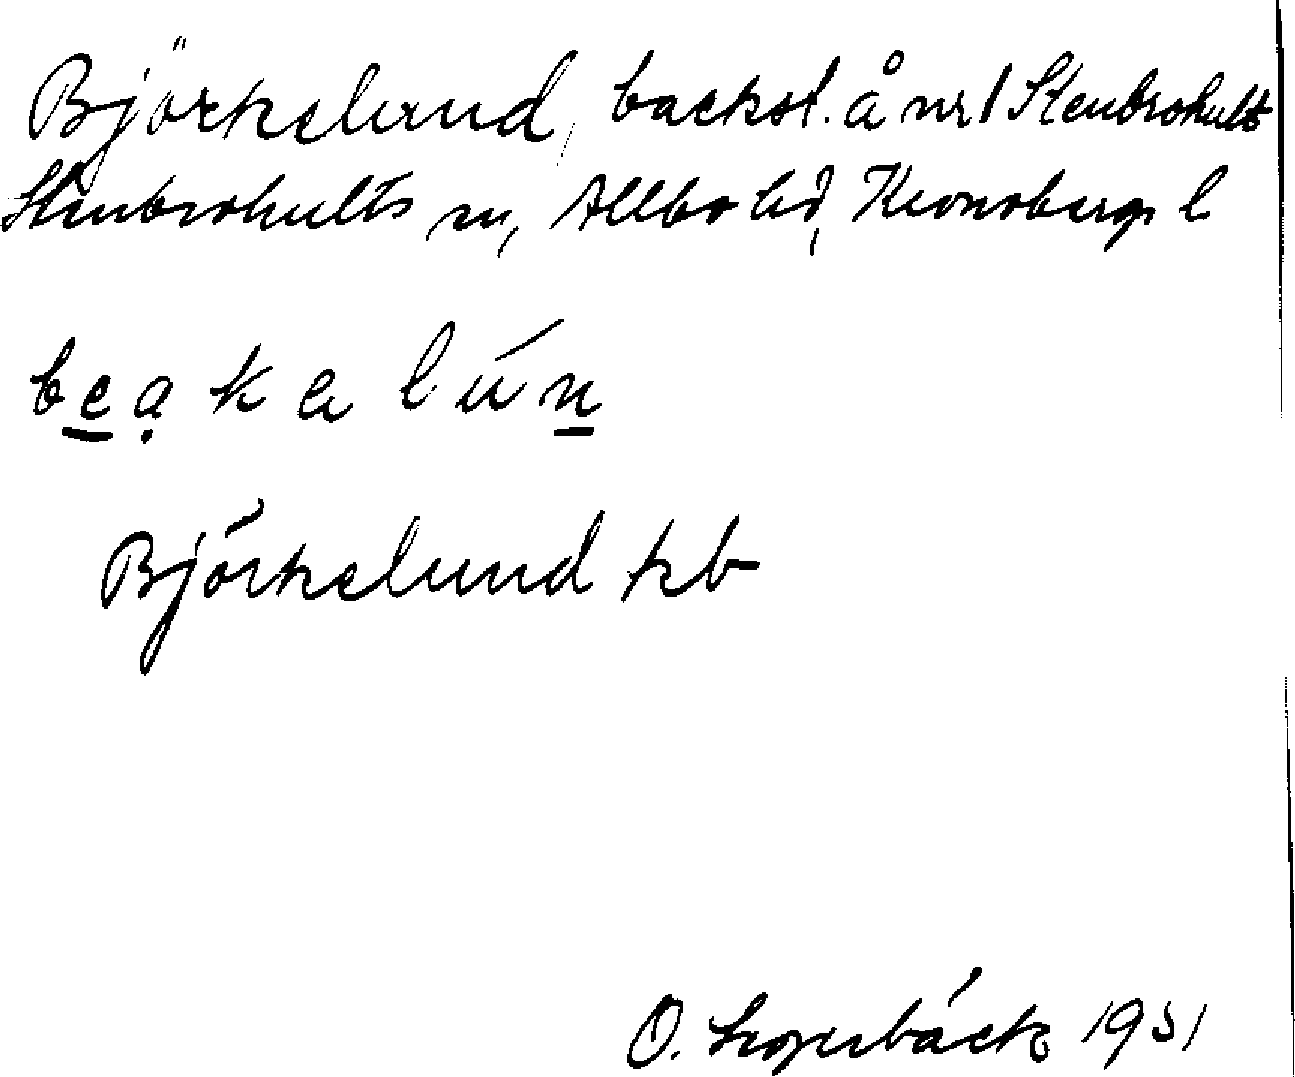 Björkelund, backst. å nr 1 Stenbrohult
Stenbrohults sn, Allbo hd, Kronobergs l
Björkelund kb
O. 1951